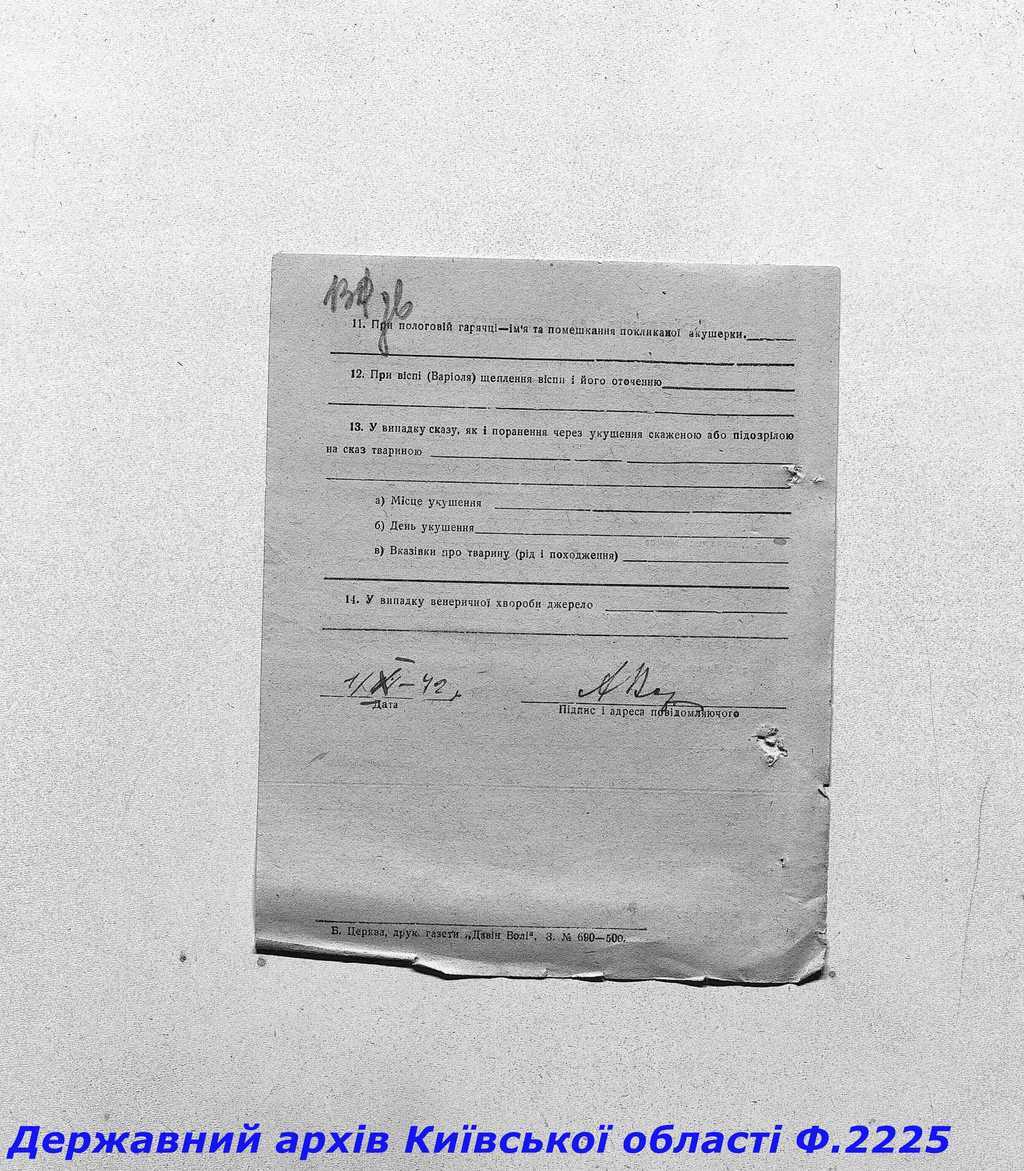 11. При пологовій гарячці—ім'я та помешкання покликаної акушерки.
12. При віспі (Варіоля) щеплення віспи і його оточенню
13. У випадку сказу, як і поранення через укушення скаженою або підозрілою
на сказ твариною
а) Місце укушення
б) День укушення
в) Вказівки про тварину (рід і походження)
14. У випадку венеричної хвороби джерело
1/XI–42
Дата
Підпис і адреса повідомляючого
Б. Церква, друк. газети „Дзвін Волі“. З. № 690—500.
Державний архів Київської області Ф.2225